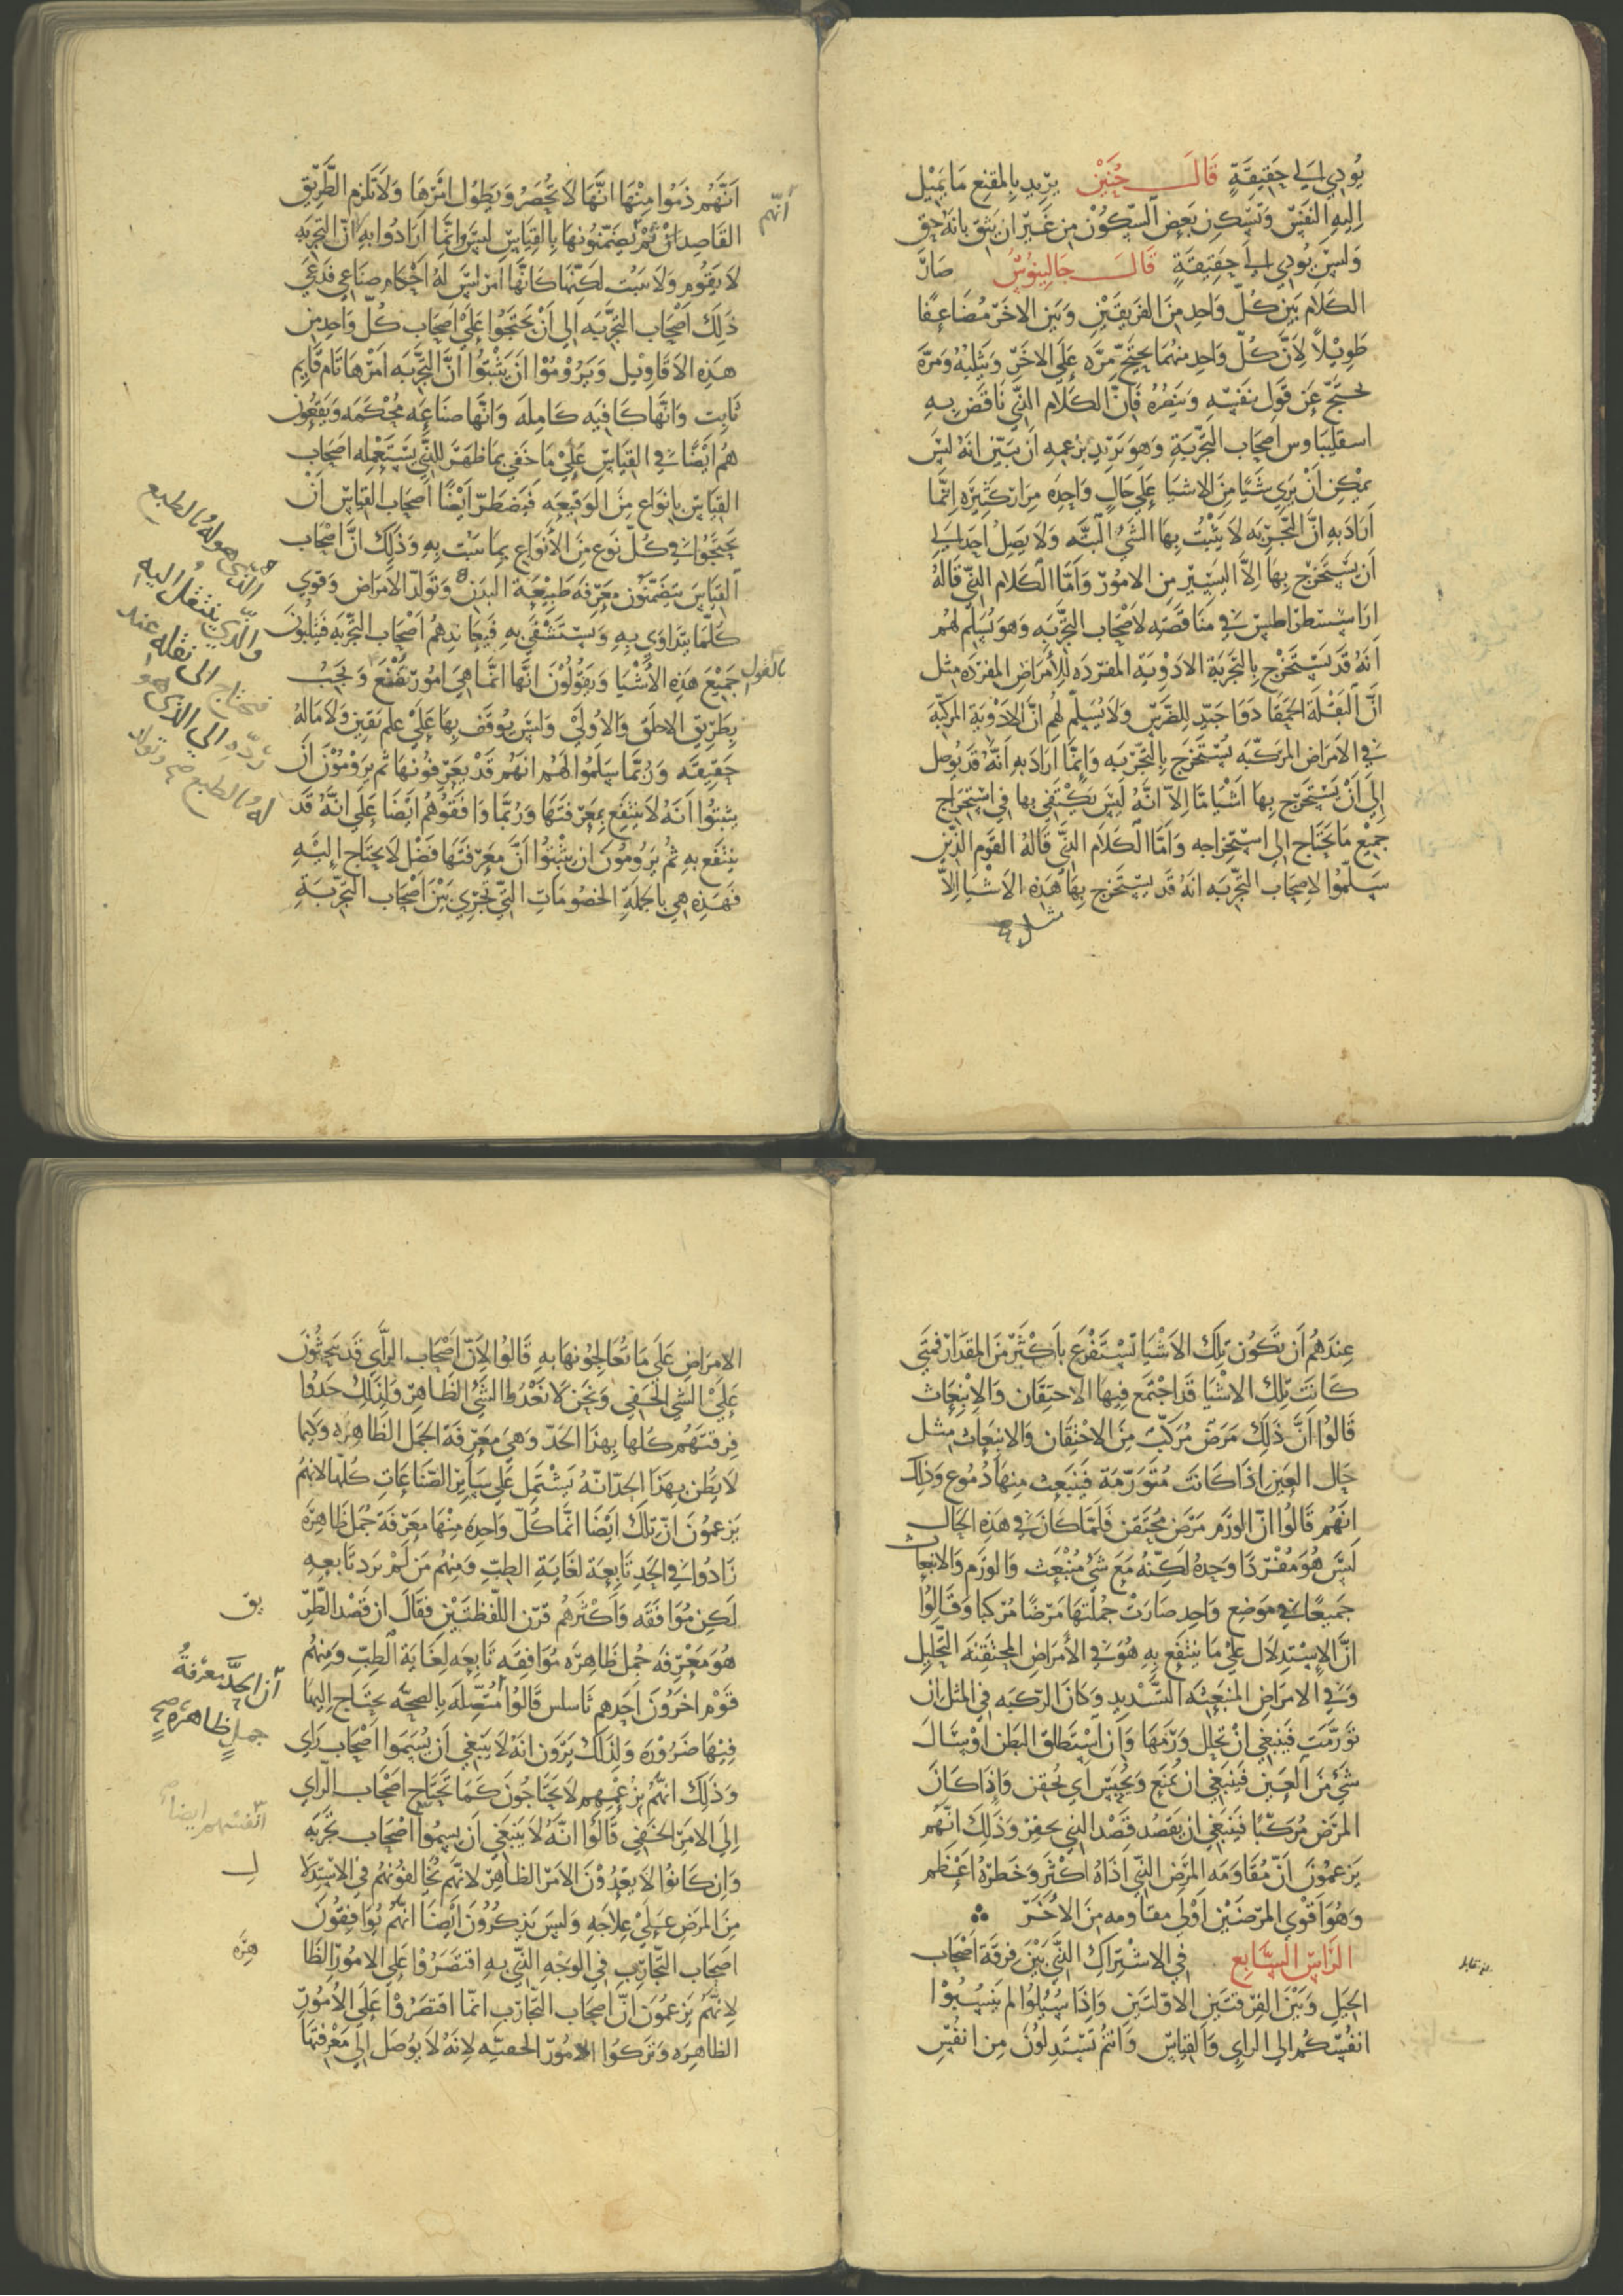 يُودي الي حَقِيقَةٍ قَالَ حُنَيْن يريد بالمقنع مَا يَميْل
اليه النفس وتسكن بعض السكون من غير ان يثق بانه حق
وليس يُودي الي حقيقةٍ قال جالينوس صار
الكلام بين كل واحد من الفريقين وبين الاخر مضاعفًا
طويلاً لأن كل واحد منهما يحتج مره علي الاخر ويثلبه ومرة
يحتج عن قول نفسه وينصره فان الكلام الذي ناقض به
اسقليباوس اصحاب التجربة وهو يريد بزعمه ان يبين انه ليس
يمكن ان يري شيا من الاشيا علي حالٍ واحده مرار كثيره انما
اراد به ان التجربه لا يثبت بها الشي البته ولا يصل احد الي
ان يستخرج بها الا اليسير من الامور واما الكلام الذي قاله
اراسسطراطس في مناقضته لاصحاب التجربه وهو يسلم لهم
انه قد يستخرج بالتجربة الادويه المفرده للأمراض المفرده مثل
ان البقلة الحمقا دوا جيد للضرس ولا يسلم لهم ان الادوية المركبة
في الامراض المركبه تستخرج بالتجربه وانما اراد به انه قد يوصل
الي ان يستخرج بها اشيا ما الا انه ليس يكتفي بها في استخراج
جميع ما يحتاج الي استخراجه واما الكلام الذي قاله القوم الذين
سلموا لاصحاب التجربه انه قد يستخرج بها هذه الاشيا الا
انهم ذموا منها انها لا تحصر ويطول امرها ولا تلزم الطريق
القاصد ثم يضمنونها بالقياس ليس وانما ارادوا به ان التجربه
لا يقوم ولا يثبت لكنها كانها امر ليس له احكام صناعي فدعي
ذلك اصحاب التجربه الي ان يحتجوا علي اصحاب كل واحد من
هذه الاقاويل ويروموا ان يثبتوا ان التجربه امرها تام قايم
ثابت وانها كافيه كامله وانها صناعه محكمه ويقعون
هم ايضًا في القياس علي ما خفي بما ظهر للذي يستعمله اصحاب
القياس بانواع من الوقيعه فيضطر ايضًا اصحاب القياس ان
يحتجوا في كل نوع من الأنواع بما يثبت به وذلك ان اصحاب
القياس يتضمنون معرفة طبيعة البدن وتولد الامراض وقوي
كلما يتداوي به ويستشفي به فيعاندهم اصحاب التجربه فيثلبون
جميع هذه الأشيا ويقولون انها انما هي امور تقنع ويجب
بطريق الاطلق والاولي وليس يوقف بها علي علم يقين ولا ما له
حقيقه وربما سلموا لهم انهم قد يعرفونها ثم يرومون ان
يثبتوا انه لا ينتفع بمعرفتها وربما وافقوهم ايضا علي انه قد
ينتفع به ثم يرومون ان يثبتوا ان معرفتها فضل لا يحتاج اليه
فهذه هي بالجملة الخصومات التي تجري بين اصحاب التجربة
انهم
بالقول
الذي هو له بالطبع
والذي ينتقل اليه
فتحتاج الي نقله عند
ردّه الي الذي هو
له بالطبع صح
عندهم ان تكون تلك الاشيا تستفرغ باكثر من المقدار فمتي
كانت تلك الاشيا قد اجتمع فيها الاحتقان والانبعاث
قالوا ان ذلك مرض مركب من الاحتقان والانبعاث مثل
حال العين اذا كانت متورمة فينبعث منها دموع وذلك
انهم قالوا ان الورم مرض محتقن فلما كان في هذه الحال
ليس هو مفردا وحده لكنه مع شي منبعث والورم والانبعاث
جميعًا في موضع واحد صارت جملتها مرضًا مركبا وقالوا
ان الاستدلال علي ما ينتفع به هو في الأمراض المحتقنة التحليل
وفي الامراض المنبعثه التسديد وكان الركبه في المثل ان
تورمت فينبغي ان تحلل ورمها وان استطلق البطن او سال
شي من العين فينبغي ان يمنع ويحبس اي يحقن واذا كان
المرض مركبًا فينبغي ان يقصد قصد الذي يحفز وذلك انهم
يزعمون ان مقاومه المرض الذي اذاه اكثر وخطره اعظم
وهو اقوي المرضين اولي مقاومه من الاخر
الراس السابع في الاشتراك الذي بين فرقة اصحاب
الحيل وبين الفرقتين الاولتين واذا سيلوا لم ينسبوا
انفسكم الي الراي والقياس وانتم تستدلون من انفس
الامراض علي ما تعالجونها به قالوا لان اصحاب الراي قد يبحثون
علي الشي الخفي ونحن لا نعدوا الشي الظاهر ولذلك حدوا
فرقتهم كلها بهذا الحد وهي معرفة الجمل الظاهره وكيما
لا يظن بهذا الحد انه يشتمل علي ساير الصناعات كلها لانهم
يزعمون ان تلك ايضا انما كل واحده منها معرفة جمل ظاهره
زادوا في الحد تابعة لغاية الطب ومنهم من لم يزد تابعه
لكن موافقه واكثرهم قرن اللفظتين فقال ان قصد الطر
هو معرفه جمل ظاهره موافقه تابعه لغاية الطب ومنهم
قوم اخرون احدهم ثاسلس قالوا متصله بالصحه يحتاج اليها
فيها ضروره ولذلك يرون انه لا ينبغي ان يسموا اصحاب راي
وذلك انهم بزعمهم لا يحتاجون كما تحتاج اصحاب الراي
الي الامر الخفي قالوا انه لا ينبغي ان يسموا اصحاب تجربه
وان كانوا لا يعدون الامر الظاهر لانهم يخالفونهم في الاستدلا
من المرض علي علاجه وليس يذكرون ايضا انهم يوافقون
اصحاب التجارب في الوجه الذي به اقتصروا علي الامور الظا
لانهم يزعمون ان اصحاب التجارب انما اقتصروا علي الأمور
الظاهره وتركوا الامور الخفيه لانه لا يوصل الي معرفتها
يق
ان الحد معرفةُ
جملٍ ظاهرة صح
انفسهم ايضا
ل
هره